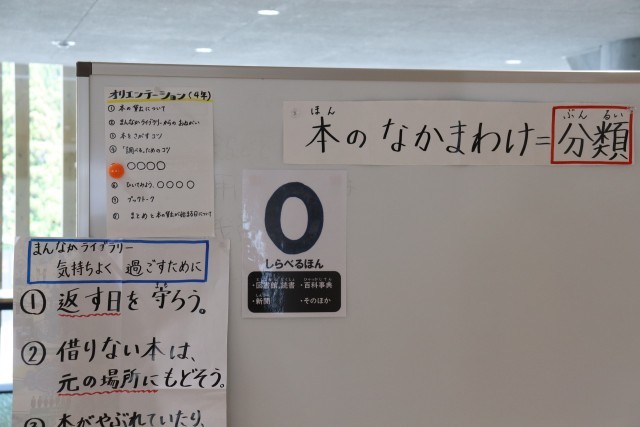 オリエンテーション(4年)
① 本の貸出について
② まんなかライブラリーからのおねがい
③ 本をさがすコツ
④ 「調べる」ためのコツ
○○○○
⑥ ひいてみよう、○○○○
⑦ ブックトーク
⑧ まとめと本の貸出が始まる日について
まんなかライブラリー
気持ちよく 過ごすために
① 返す日を守ろう。
② 借りない本は、
元の場所にもどそう。
③ 本がやぶれていたり、
ほん ぶん るい
本のなかまわけ=分類
0
しらべるほん
・図書館、読書 ・百科事典
・新聞 ・そのほか